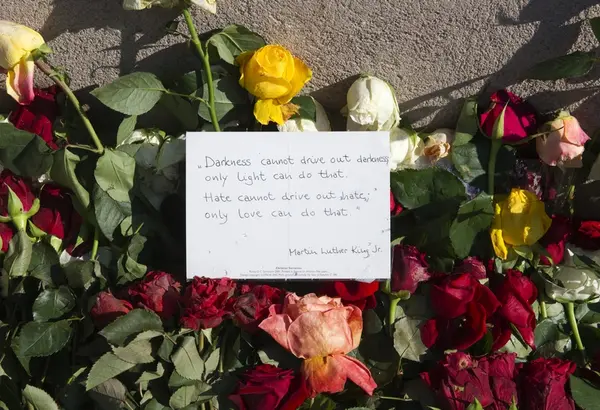 „Darkness cannot drive out darkness,
only light can do that.
Hate cannot drive out hate,
only love can do that."
Martin Luther King Jr.